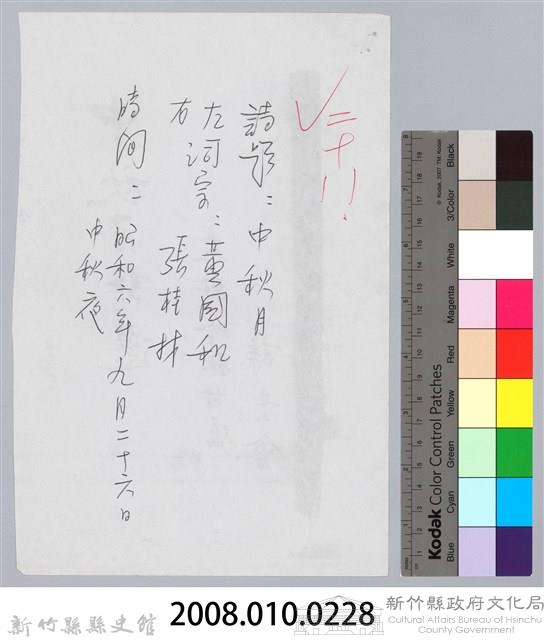 二十!!
詩題:中秋月
左詞宗:黃國和
右 張桂林
時间:昭和六年九月二十六日
中秋夜
Black
3/Color
White
Magenta
Red
Yellow
Green
Cyan
Blue
Kodak Color Control Patches
© Kodak, 2007 TM: Kodak
新竹縣縣史館
2008.010.0228
新竹縣政府文化局
Cultural Affairs Bureau of Hsinchu
County Government